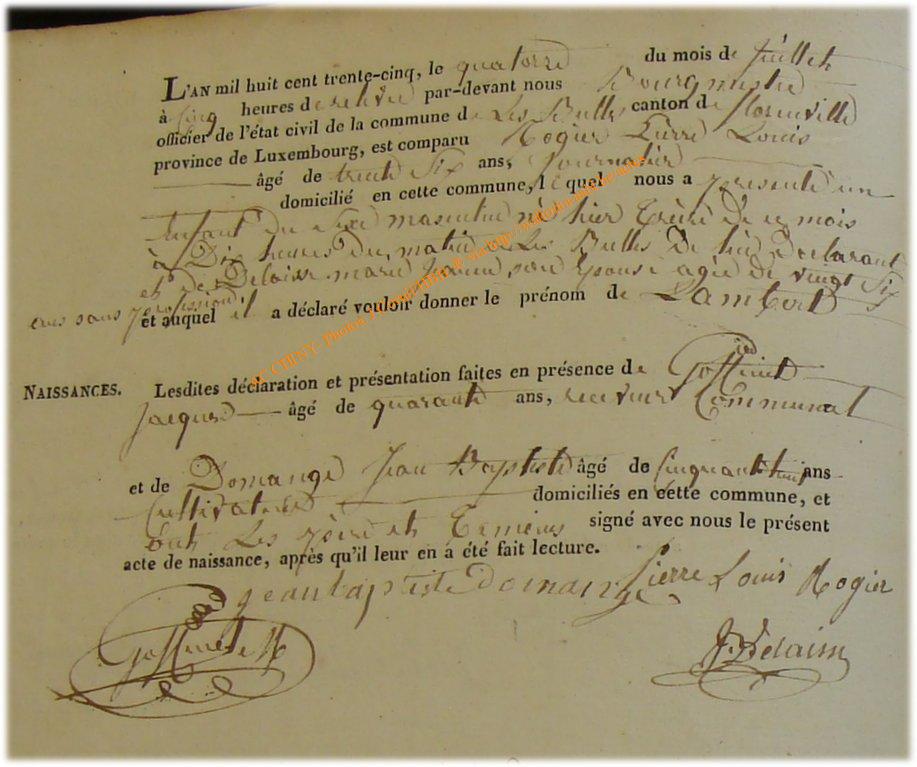 L'AN mil huit cent trente-cinq, le quatorze du mois de juillet
à cinq heures de relevée par-devant nous Bourgmestre
officier de l'état civil de la commune de Les Bulles canton de Florenville
province de Luxembourg, est comparu Rogier Pierre Louis
âgé de trente Six ans, Journalier
domicilié en cette commune, lequel nous a présenté un
Enfant du Sexe masculin né hier treize de ce mois
à Dix heures du matin Les Bulles De lui Declarant
et de marie son épouse agée de vingt Six
ans sans profession et auquel il a déclaré vouloir donner le prénom de Lambert
NAISSANCES. Lesdites déclaration et présentation faites en présence de Goffinet
Jacques âgé de quarante ans, receveur Communal
et de Domange Jean Baptiste âgé de cinquante huit ans
Cultivateur domiciliés en cette commune, et
ont Les père et témoins signé avec nous le présent
acte de naissance, après qu'il leur en á été fait lecture.
jeanbaptiste Pierre Louis Rogier
Goffinet